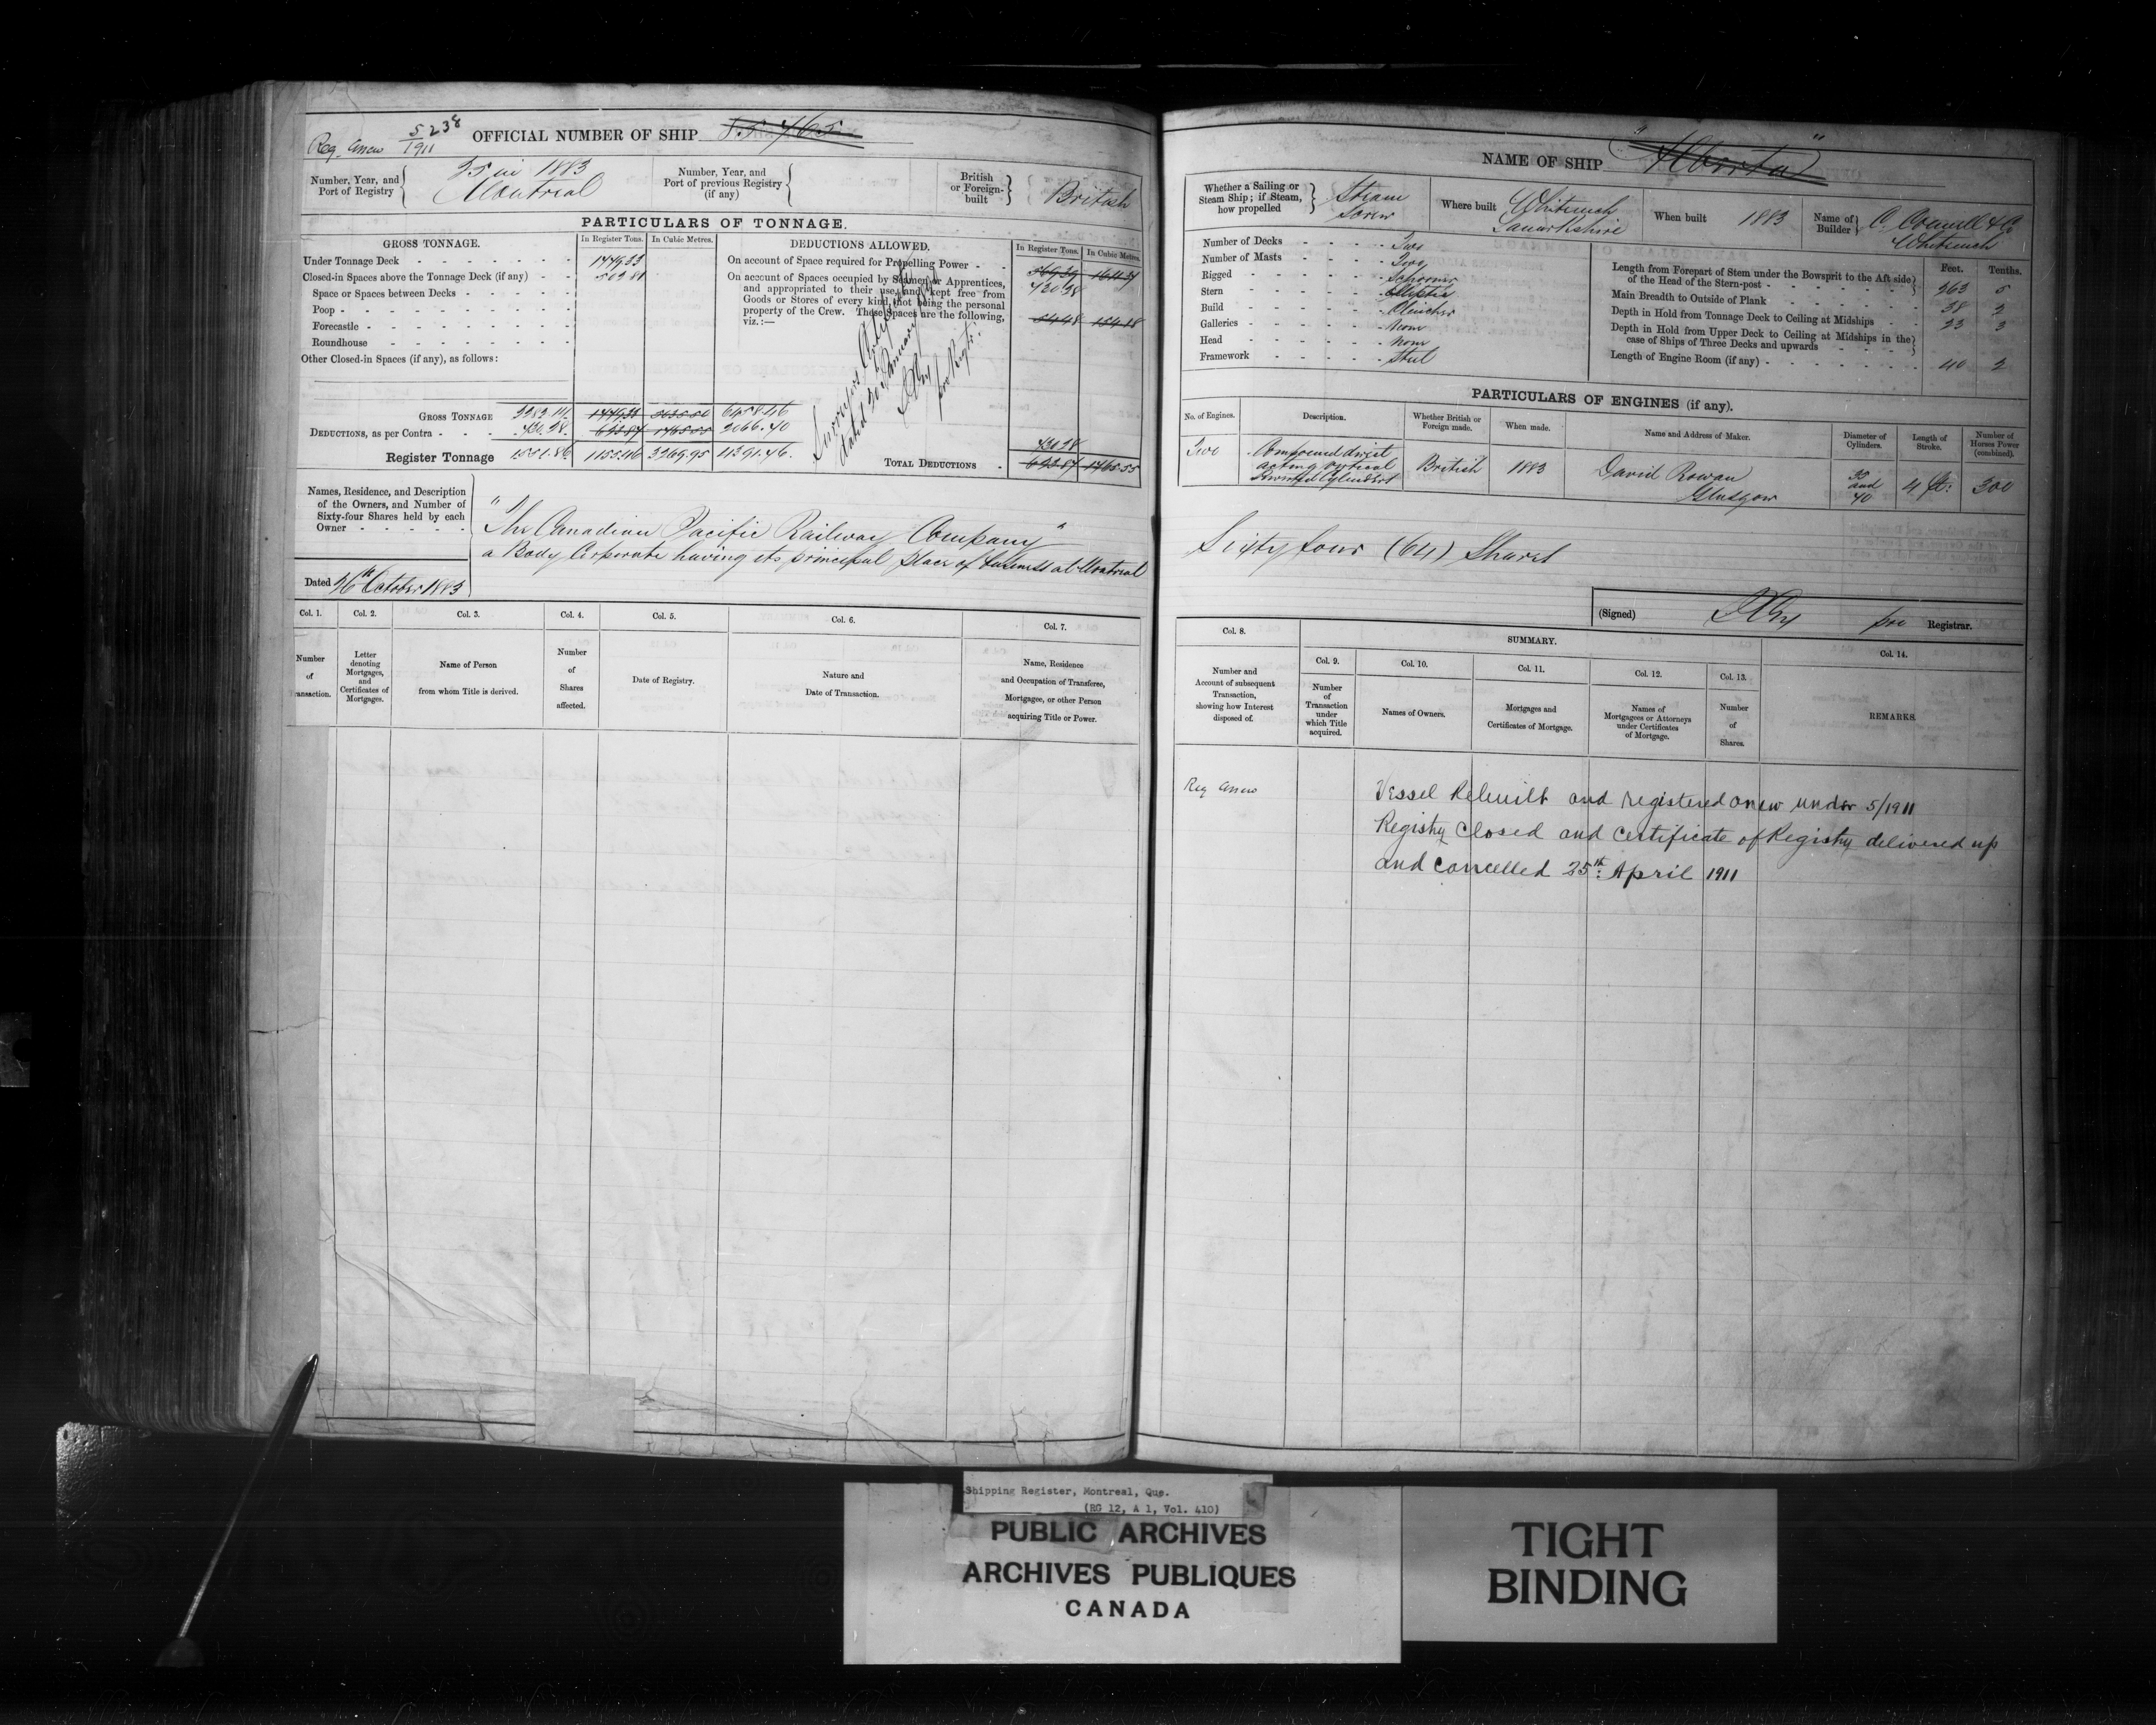 Reg. Anew 5/1911 238
OFFICIAL NUMBER OF SHIP 85 765
Number, Year, and Port of Registry
35 in 1883
Montreal
Number, Year, and Port of previous Registry (if any)
British or Foreign-built
British
PARTICULARS OF TONNAGE.
GROSS TONNAGE.
In Register Tons.
In Cubic Metres.
DEDUCTIONS ALLOWED.
In Register Tons.
In Cubic Metres.
Under Tonnage Deck
Closed-in Spaces above the Tonnage Deck (if any)
Space or Spaces between Decks
Poop
Forecastle
Roundhouse
Other Closed-in Spaces (if any), as follows:
On account of Space required for Propelling Power
On account of Spaces occupied by Seamen or Apprentices,
and appropriated to their use, and kept free from
Goods or Stores of every kind, not being the personal
property of the Crew. These Spaces are the following,
viz.:—
GROSS TONNAGE
DEDUCTIONS, as per Contra
Register Tonnage
1155.46 3269.95
TOTAL DEDUCTIONS
Names, Residence, and Description
of the Owners, and Number of
Sixty-four Shares held by each
Owner
"The Canadian Pacific Railway Company"
a Body Corporate having its principal place of business at Montreal
Dated 26th October 1883
Col. 1. Col. 2. Col. 3. Col. 4. Col. 5. Col. 6. Col. 7.
Number of Transaction.
Letter denoting Mortgages, and Certificates of Mortgages.
Name of Person from whom Title is derived.
Number of Shares affected.
Date of Registry.
Nature and Date of Transaction.
Name, Residence and Occupation of Transferee, Mortgagee, or other Person acquiring Title or Power.
NAME OF SHIP "Alberta"
Whether a Sailing or Steam Ship; if Steam, how propelled
Steam
Screw
Where built
Whiteinch
Lanarkshire
When built 1883
Name of Builder
C. Connell & Co
Whiteinch
Number of Decks Two
Number of Masts Two
Rigged Schooner
Stern Elliptic
Build Clencher
Galleries None
Head None
Framework Steel
Feet. Tenths.
Length from Forepart of Stem under the Bowsprit to the Aft side
of the Head of the Stern-post 263 5
Main Breadth to Outside of Plank 38 2
Depth in Hold from Tonnage Deck to Ceiling at Midships 23 3
Depth in Hold from Upper Deck to Ceiling at Midships in the
case of Ships of Three Decks and upwards
Length of Engine Room (if any) 40 2
PARTICULARS OF ENGINES (if any).
No. of Engines.
Description.
Whether British or Foreign made.
When made.
Name and Address of Maker.
Diameter of Cylinders.
Length of Stroke.
Number of Horses Power (combined).
Two
Compound direct
acting vertical
Inverted Cylinders
British
1883
David Rowan
Glasgow
and
4 ft: 300
Sixty four (64) Shares
(Signed)
pro Registrar.
SUMMARY.
Col. 8. Col. 9. Col. 10. Col. 11. Col. 12. Col. 13. Col. 14.
Number and Account of subsequent Transaction, showing how Interest disposed of.
Number of Transaction under which Title acquired.
Names of Owners.
Mortgages and Certificates of Mortgage.
Names of Mortgagees or Attorneys under Certificates of Mortgage.
Number of Shares.
REMARKS.
Reg Anew
Vessel Rebuilt and registered anew under 5/1911
Registry closed and certificate of Registry delivered up
and cancelled 25th April 1911
Shipping Register, Montreal, Que.
(RG 12, A 1, Vol. 410)
PUBLIC ARCHIVES
ARCHIVES PUBLIQUES
CANADA
TIGHT
BINDING